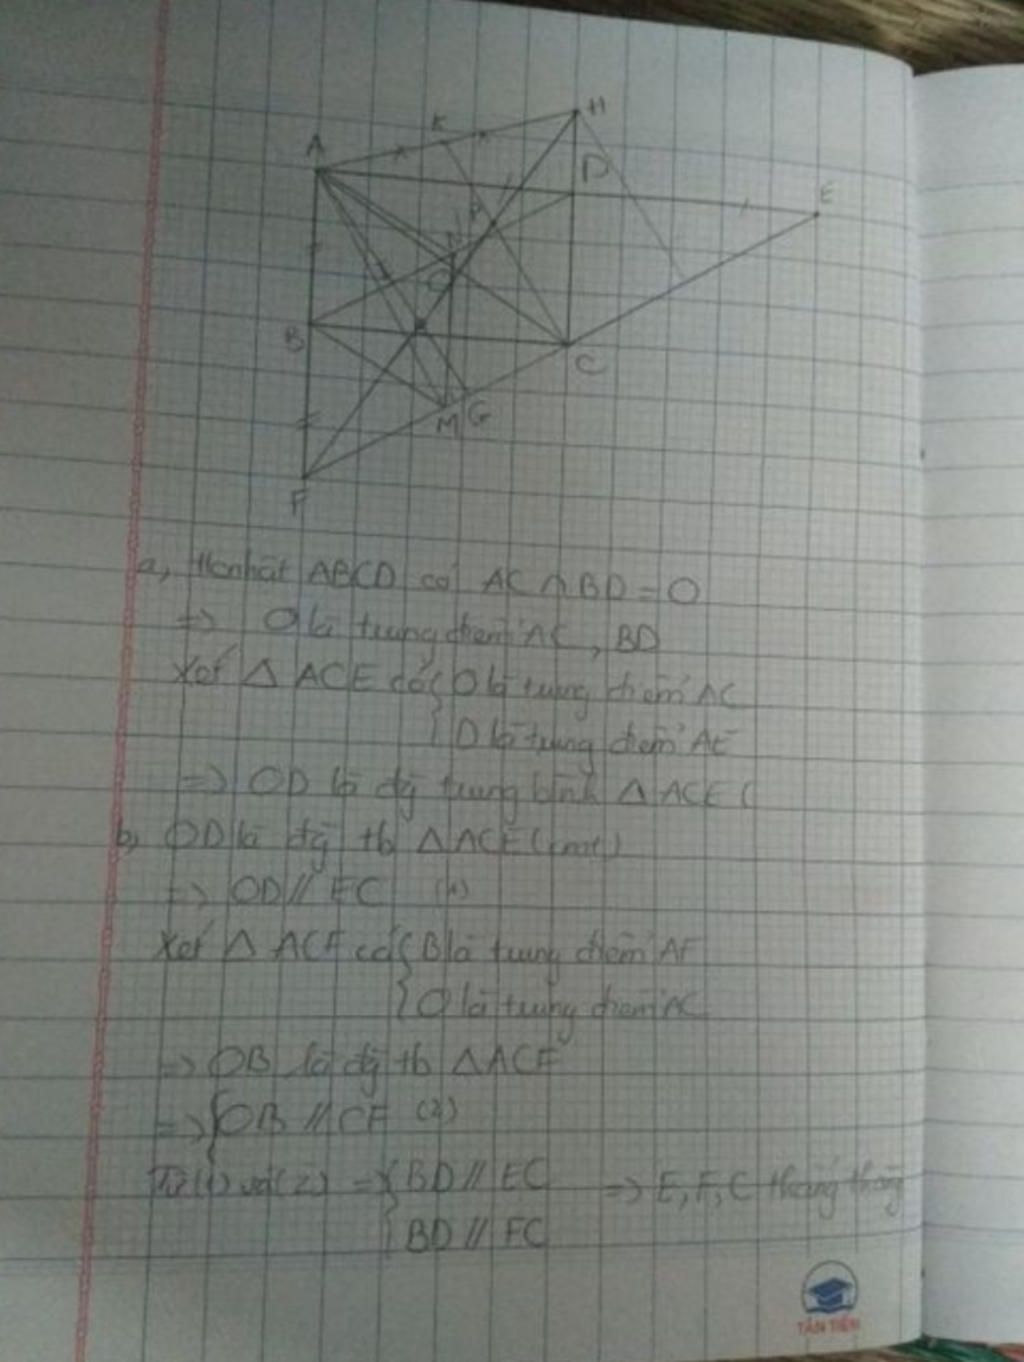 H
K
A
D
E
O
B
C
M G
F
a, Hcnhật ABCD có AC ∩ BD = O
=> O là trung điểm AC, BD
Xét Δ ACE có { O là trung điểm AC
{ D là trung điểm AE
=> OD là đg trung bình Δ ACE (
b, OD là đg tb Δ ACE (cmt)
=> OD // EC (1)
Xét Δ ACF có { B là trung điểm AF
{ O là trung điểm AC
=> OB là đg tb Δ ACF
=> { OB // CF (2)
Từ (1) và (2) => { BD // EC => E, F, C thẳng hàng
{ BD // FC
TÂN TIẾN